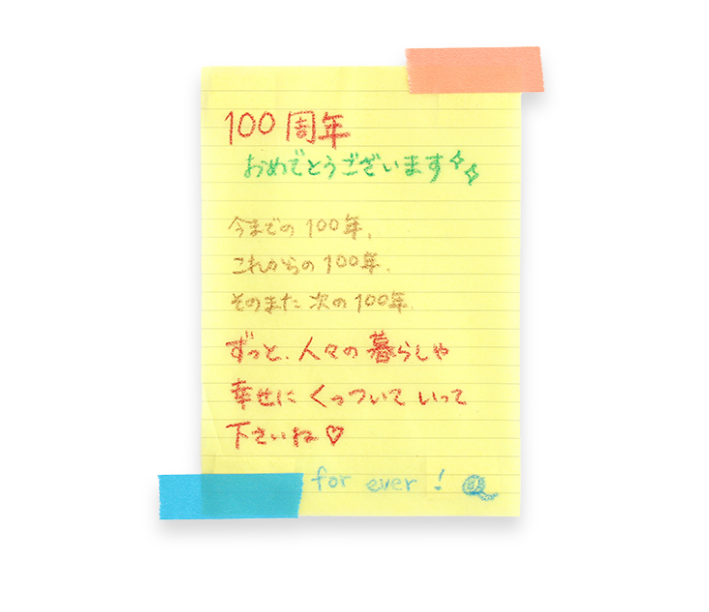 100周年
おめでとうございます
今までの100年,
これからの100年.
そのまた次の100年.
ずっと、人々の暮らしや
幸せにくっついていって
下さいね♡
for ever!